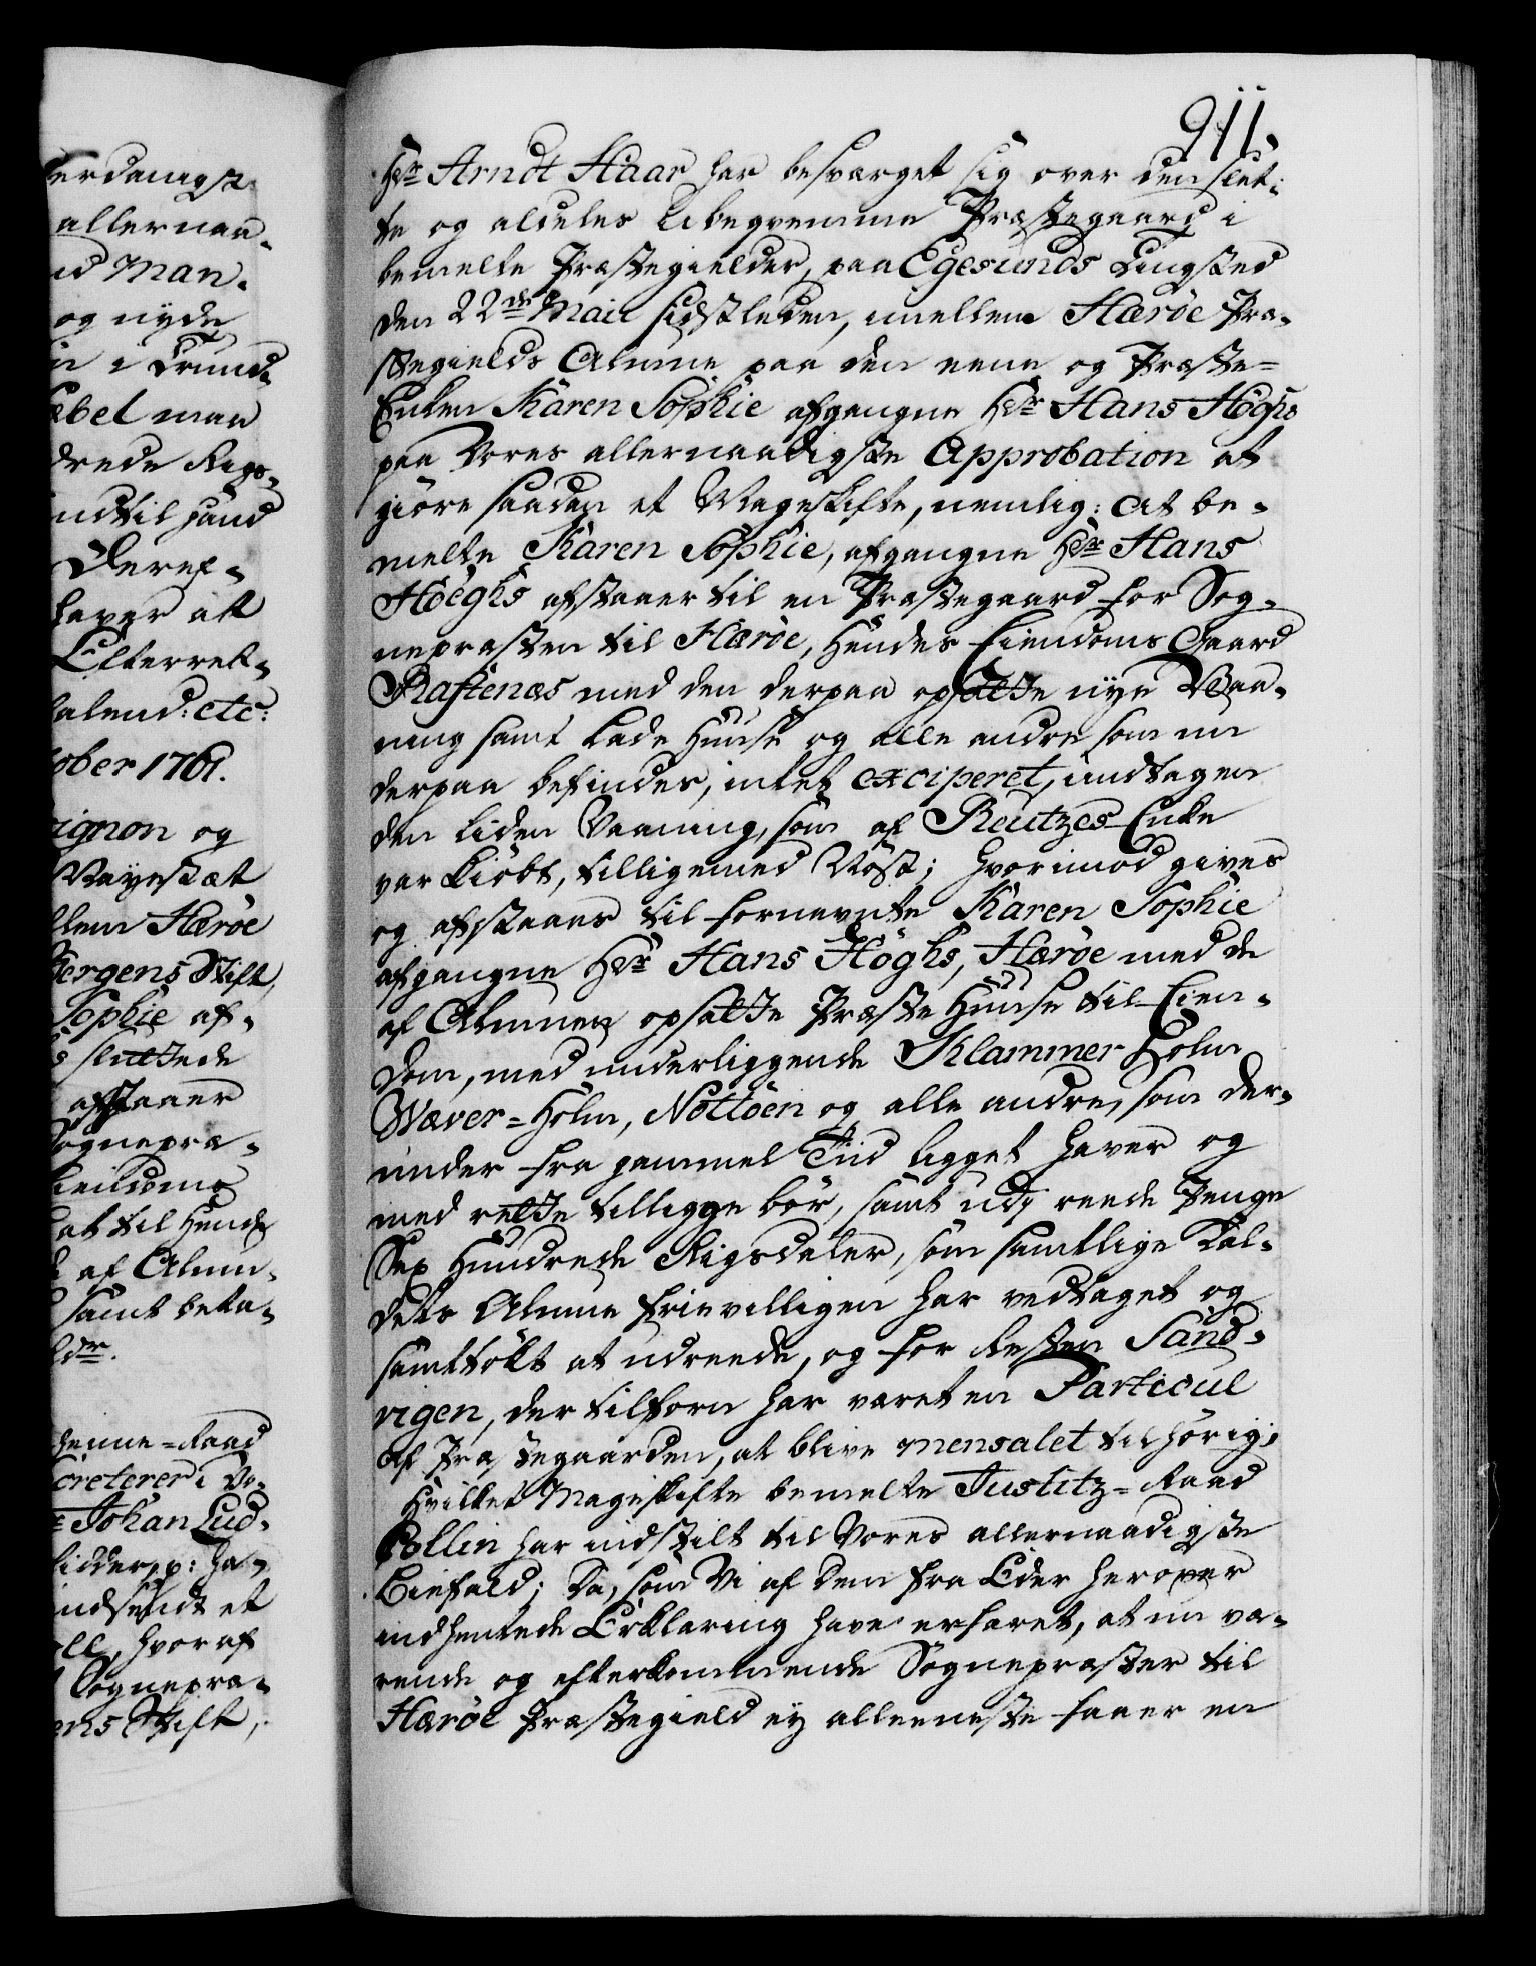 911.
Hr Arndt Haar har besværget sig over den slet-
te og aldeles ubeqvemme Præstegaard i
bemelte Præstegielder, paa Egesunds Tingsted
den 22de Maii sidstleden, imellem Herøe Præ-
stegields Almue paa den eene og Præste-
Enken Karen Sophie afgangne Hr Hans Høghs
paa Vores allernaadigste Approbation at
giøre saadan et Mageskifte, nemlig: At be-
melte Karen Sophie, afgangne Hr Hans
Høeghs afstaaer til en Præstegaard for Sog-
nepræsten til Herøe, Hendes Eiendoms Gaard
Raftenæs med den derpaa opsatte nye Vaa-
ning samt Lade Huuse og alle andre som nu
derpaa befindes, intet exciperet, undtagen
den liden Vaaning, som af Reutzes Enke
var kiøbt, tilligemed Nøst; hvorimod gives
og afstaaes til fornevnte Karen Sophie
afgangne Hr Hans Høghs, Herøe med de
af Almuen opsatte Præste Huuse til Eien-
dom, med underliggende Klammer Holm
Wæver-Holm, Nottøen og alle andre, som der-
under fra gammel Tiid ligget haver og
med rette tilligge bør, samt udj reede Penge
Sex Hundrede Rigsdaler, som samtlige Kal-
dets Almue frievilligen har vedtaget og
samtøkt at udreede, og for Resten Sand-
vigen, der tilforn har været en Particul
af Præstegaarden, at blive mensalet tilhørig;
Hvilket Mageskifte bemelte Justitz-Raad
Collin har indstilt til Vores allernaadigste
Biefald; Da, som Vi af den fra Eder herover
indhentede Erklæring have erfaret, at nu væ-
rende og efterkommende Sognepræster til
Herøe Præstegield ey alleeneste faaer en